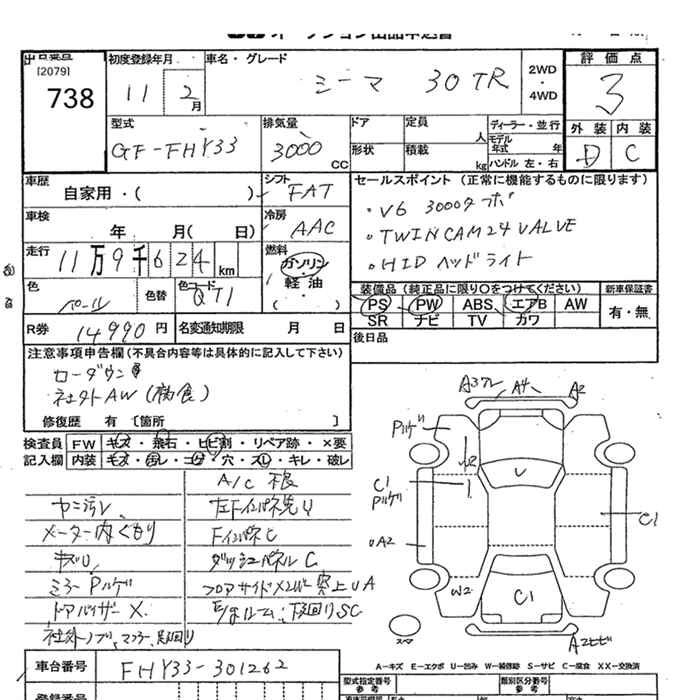 オークション出品申込書
出品番号
[2079]
738
初度登録年月
11 2月
車名・グレード
シーマ 30TR
2WD
・
4WD
評価点
3
外装 内装
D C
型式
GF-FHY33
排気量
3000 CC
ドア
形状
定員 人
積載 kg
ディーラー・並行
モデル年式 年
ハンドル 左・右
車歴
自家用・( )
シフト
FAT
車検
年 月( 日)
冷房
AAC
走行
11万9千624km
燃料
ガソリン
・
軽油
( )
色
パール
色替
色コード
QT1
R券 14990円
名変通知期限 月 日
セールスポイント (正常に機能するものに限ります)
・V6 3000ターボ
・TWINCAM24VALVE
・HIDヘッドライト
装備品 (純正品に限り○をつけてください)
新車保証書
PS PW ABS エアB AW
SR ナビ TV カワ
有・無
後日品
注意事項申告欄(不具合内容等は具体的に記入して下さい)
ローダウン
社外AW(腐食)
修復歴 有〔箇所 〕
検査員 FW キズ・飛石・ヒビ割・リペア跡・×要
記入欄 内装 キズ・汚レ・コゲ・穴・スレ・キレ・破レ
A/C 根
ヤニ汚レ
メーター内くもり
キズU
ミラーPハゲ
ドアバイザーX
左FインパネU
FインパネC
ダッシュパネルC
フロアサイドメンバー突上UA
下廻りSC
A3 A4 A2
Pハゲ
C1
Pハゲ
A2
W2
U
1
C1
C1
A2ヒビ
スペア
A－キズ E－エクボ U－凹み W－補修跡 S－サビ C－腐食 XX－交換済
車台番号
FHY33-301262
型式指定番号
参考
類別区分番号
参考